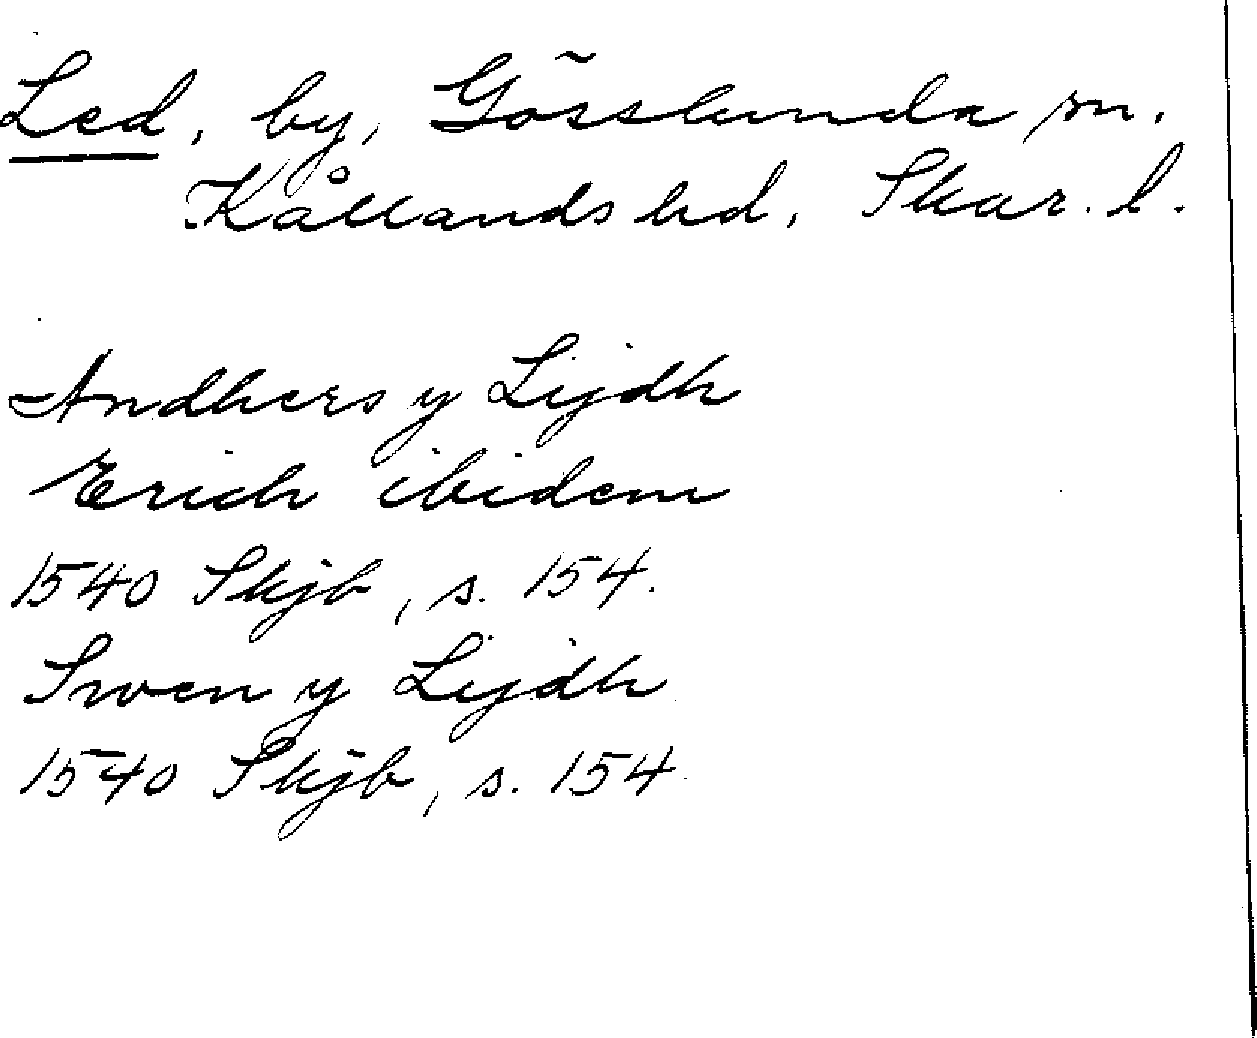 Led, by, Gösslunda sn.
Kållands hd, Skar. l.
Andhers y Lijdh
Erich ibidem
1540 Skjb, s. 154.
Swen y Lijdh
1540 Skjb, s. 154